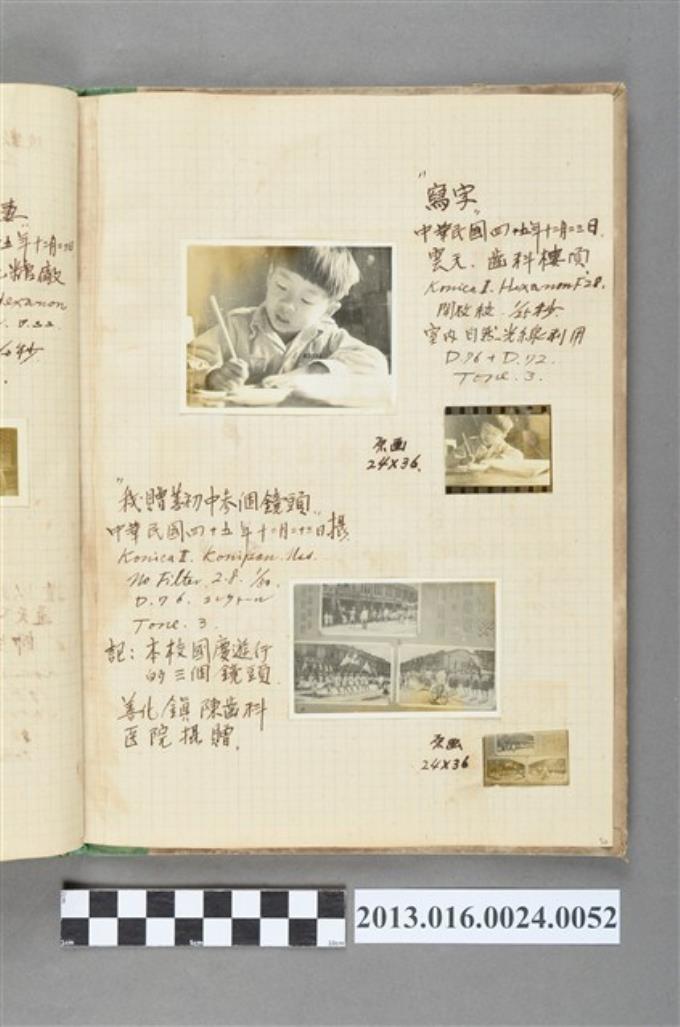 "寫字"
中華民國四十五年十二月二三日.
雲元. 齒科樓頂
Konica Ⅱ. Hexanon F2.8.
開放絞. 1/25秒.
室內自然光線利用
D.76 + D.72.
Tone. 3.
原画
24×36.
"我贈善初中參個鏡頭"
中華民國四十五年十二月二十三日攝
Konica Ⅱ. Konipan.
No Filter. 2.8.
D.76.
Tone. 3.
記: 本校國慶遊行
的三個鏡頭
善化鎮陳齒科
医院攝贈.
原画
24×36
五年十二月二三日
Hexanon
秒
2013.016.0024.0052